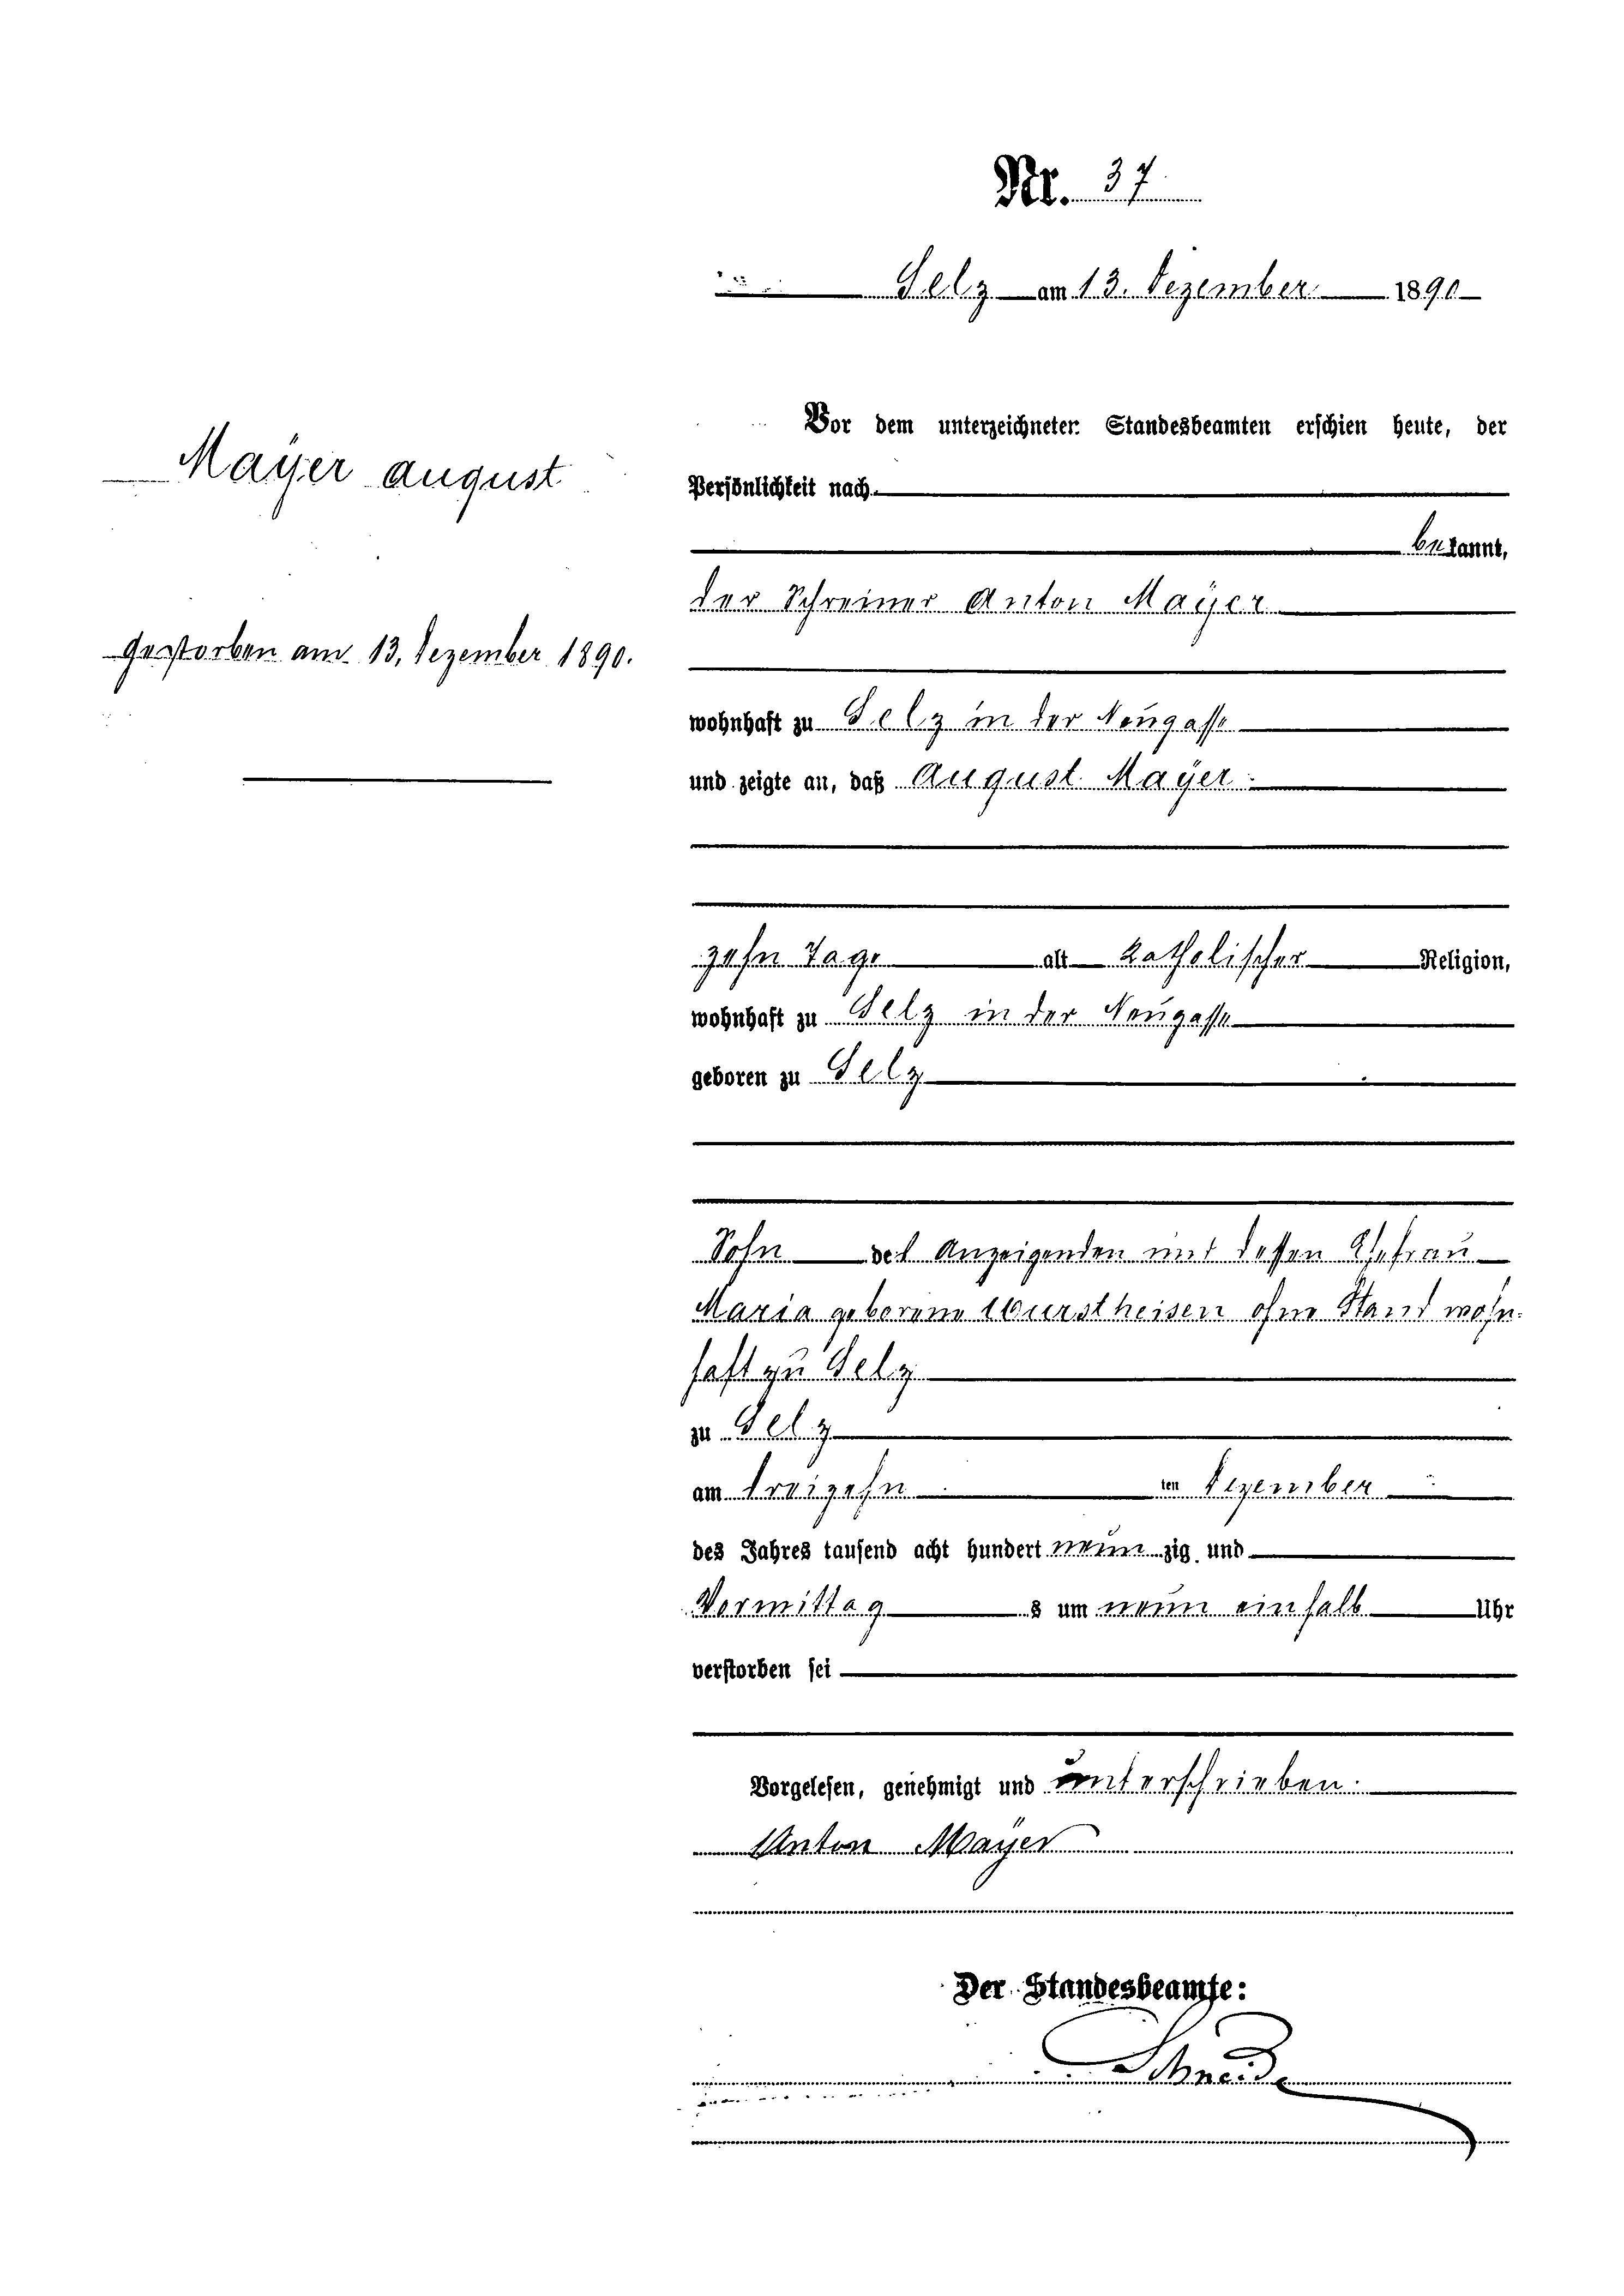 Nr. 37
Selz am 13. Dezember 1890
Mayer August
gestorben am 13. Dezember 1890.
Vor dem unterzeichneten Standesbeamten erschien heute, der
Persönlichkeit nach
bekannt,
der Schreiner Anton Mayer
wohnhaft zu Selz in der Neugasse
und zeigte an, daß August Mayer
zehn Tage alt katholischer Religion,
wohnhaft zu Selz in der Neugasse
geboren zu Selz
Sohn des Anzeigenden und dessen Ehefrau
Maria geborene Wurstheisen ohne Stand wohn-
haft zu Selz
zu Selz
am dreizehn ten Dezember
des Jahres tausend acht hundert neun zig und
Vormittag s um neun einhalb Uhr
verstorben sei
Vorgelesen, genehmigt und unterschrieben.
Anton Mayer
Der Standesbeamte:
Schneider